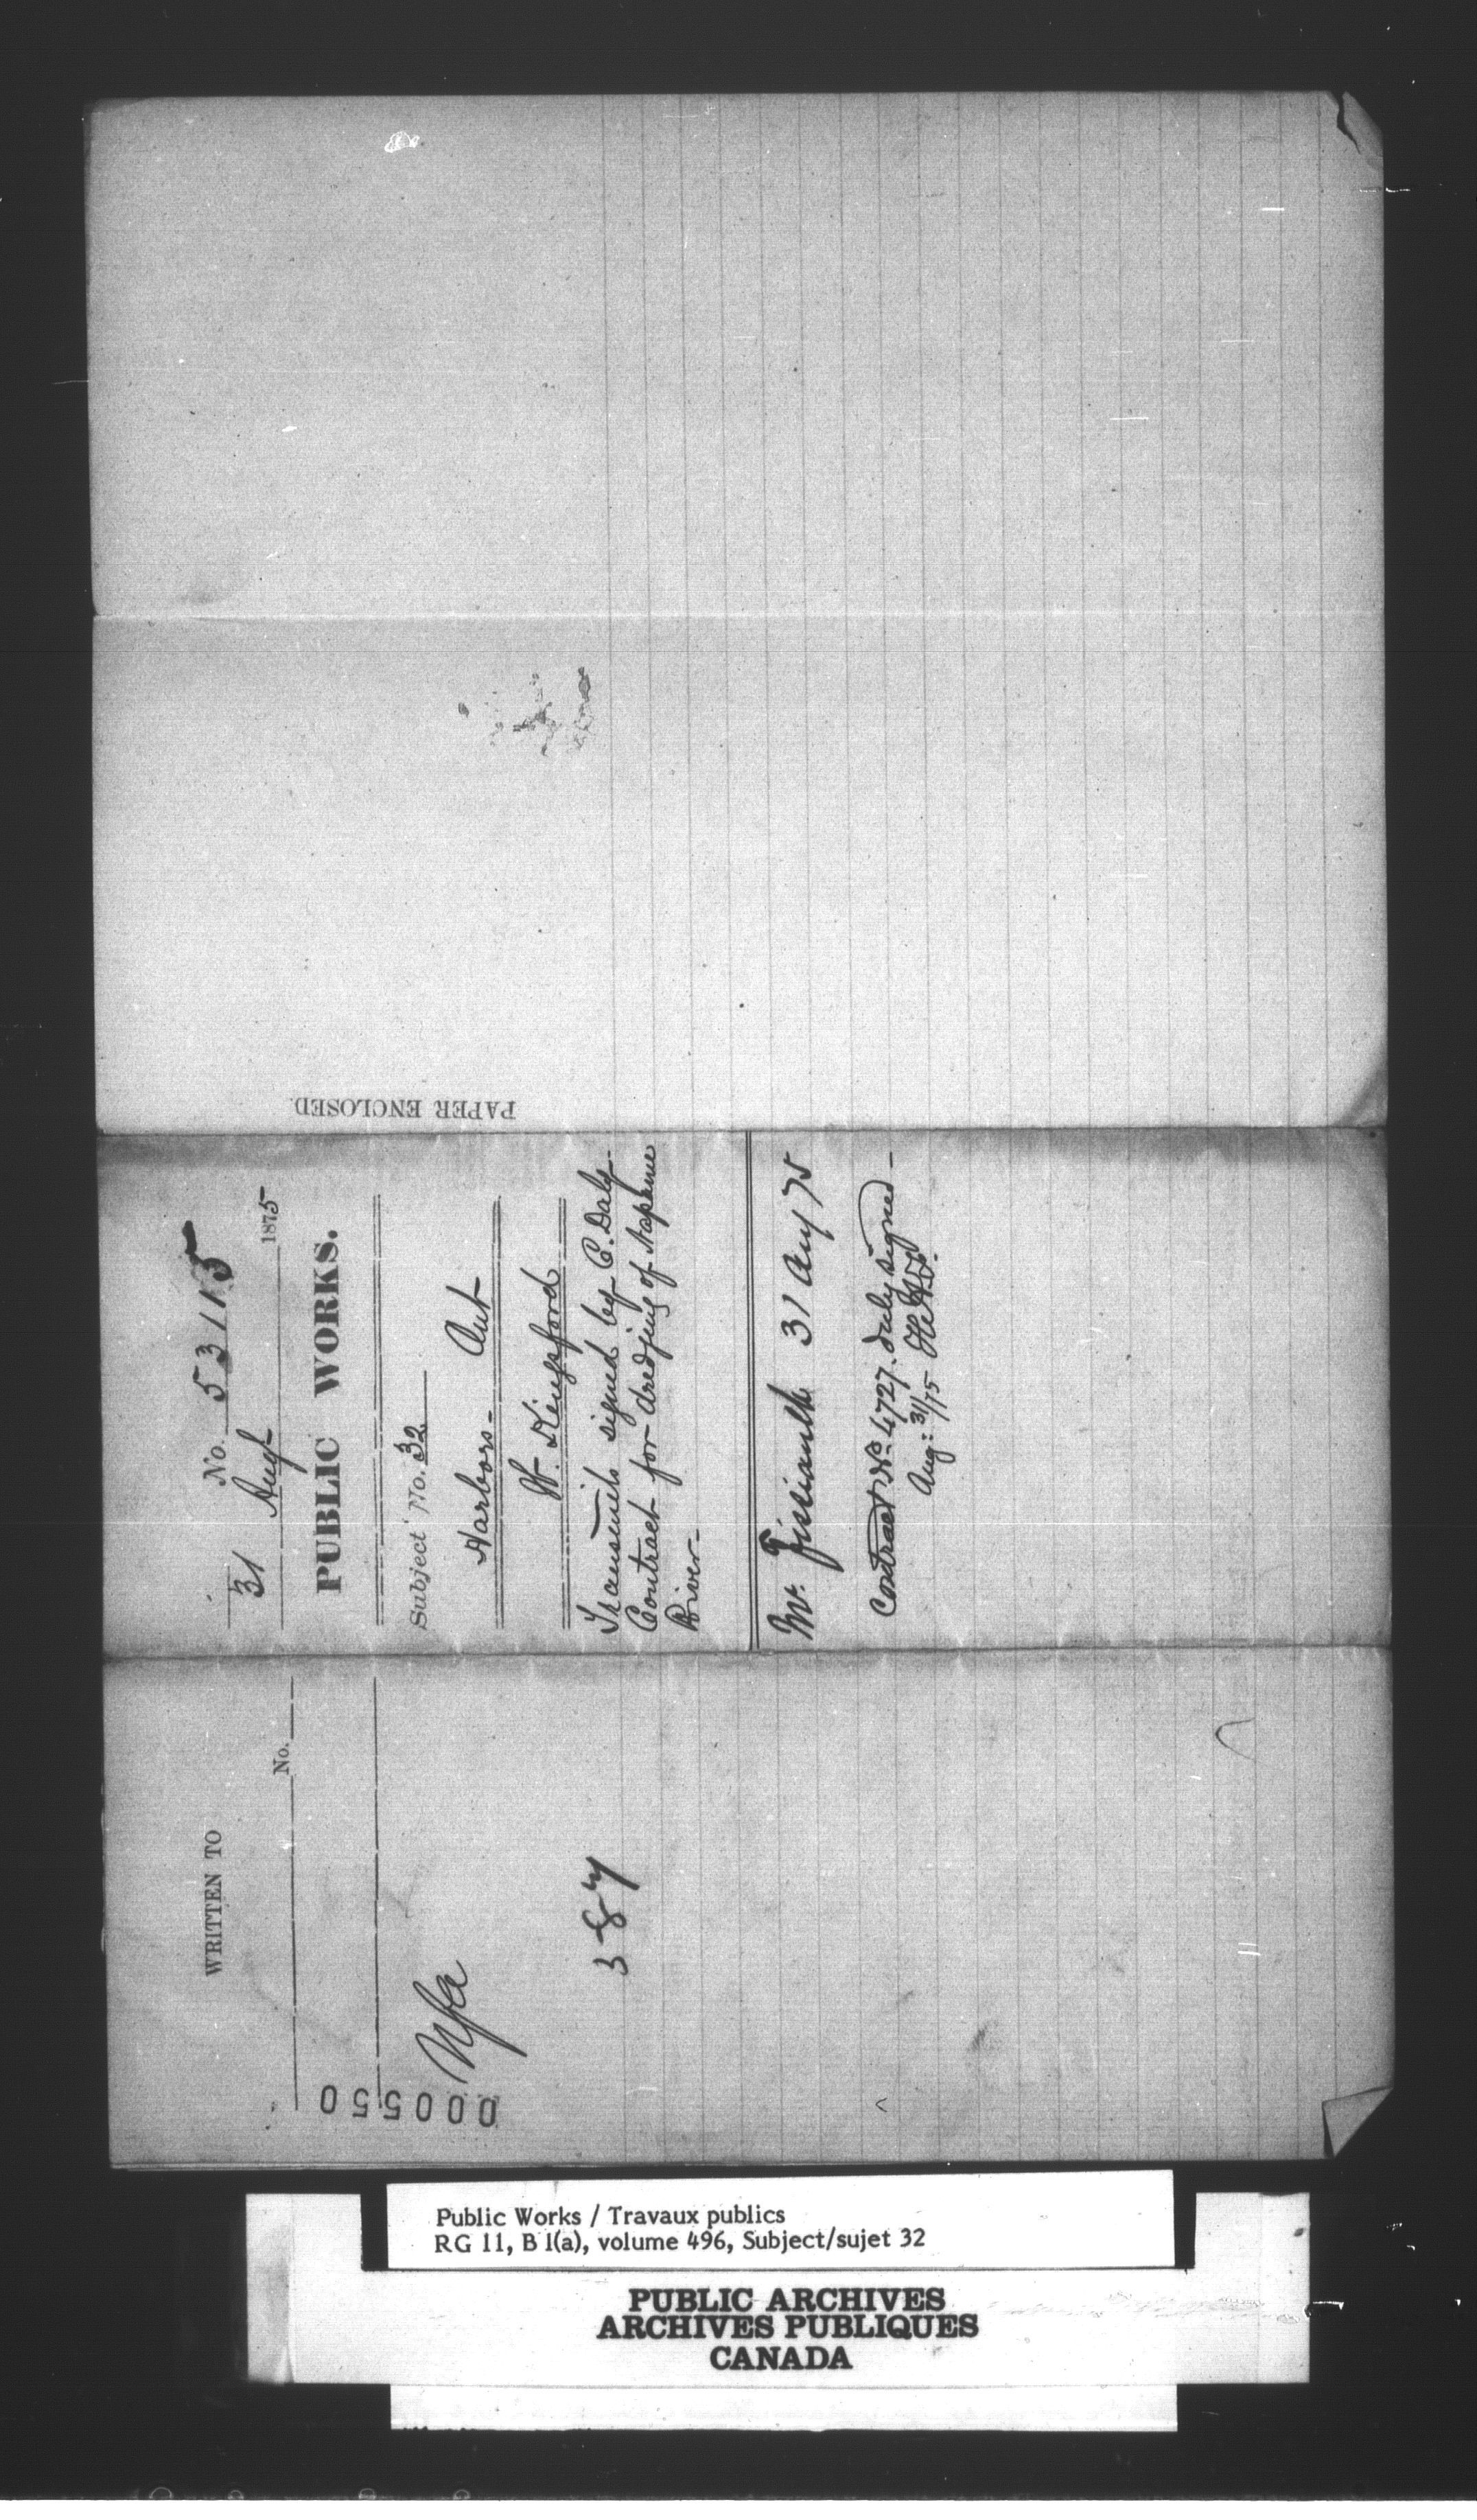 PAPER ENCLOSED.
No. 53115
31 Augt 1875
PUBLIC WORKS.
Subject No. 32
Harbors - Ont
W. Kingsford
Transmits signed by C. Daly -
Contract for dredging of Napanee
River -
Mr. Fissiault 31 Aug 75
Contract No. 4727. duly signed -
Aug: 31/75
WRITTEN TO
No.
Nfa
387
000550
Public Works / Travaux publics
RG 11, B 1(a), volume 496, Subject/sujet 32
PUBLIC ARCHIVES
ARCHIVES PUBLIQUES
CANADA